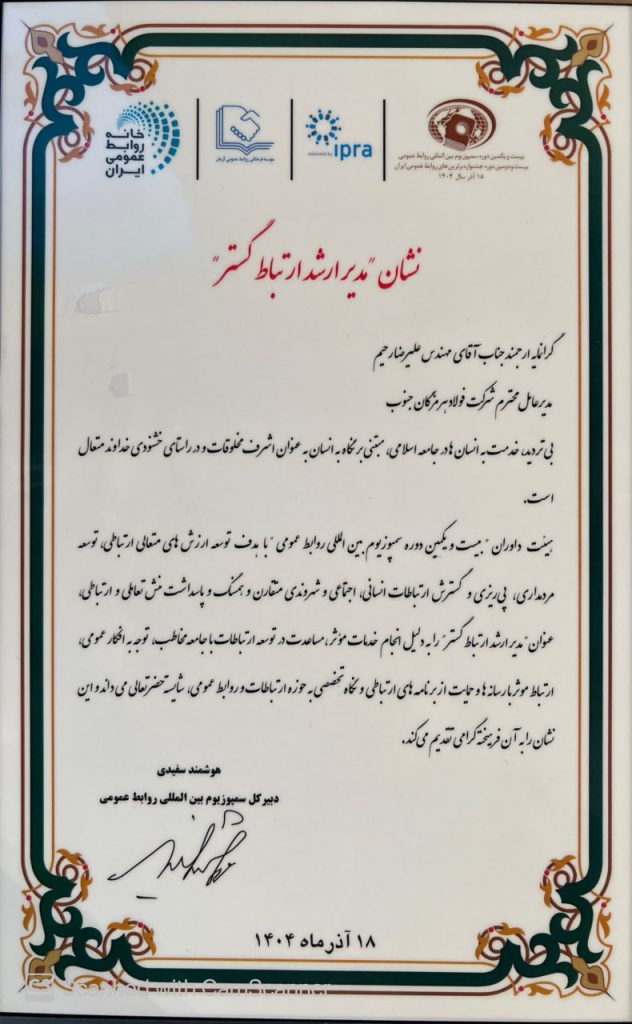 خانه
روابط
عمومی
ایران
موسسه فرهنگی روابط عمومی آرمان
ipra
بیست و یکمین دوره سمپوزیوم بین المللی روابط عمومی
بیست و دومین دوره جشنواره برترین های روابط عمومی ایران
۱۸ آذر سال ۱۴۰۴
نشان "مدیر ارشد ارتباط گستر"
گرانمایه ارجمند جناب آقای مهندس علیرضا رحیم
مدیرعامل محترم شرکت فولاد هرمزگان جنوب
بی تردید، خدمت به انسان ها در جامعه اسلامی، مبتنی بر نگاه به انسان به عنوان اشرف مخلوقات و در راستای خشنودی خداوند متعال
است.
هیئت داوران "بیست و یکمین دوره سمپوزیوم بین المللی روابط عمومی" با هدف توسعه ارزش های متعالی ارتباطی، توسعه
مردمداری، پی ریزی و گسترش ارتباطات انسانی، اجتماعی و شهروندی متقارن و همسنگ و پاسداشت منش تعاملی و ارتباطی،
عنوان "مدیر ارشد ارتباط گستر" را به دلیل انجام خدمات مؤثر، مساعدت در توسعه ارتباطات با جامعه مخاطب، توجه به افکار عمومی،
ارتباط موثر با رسانه ها و حمایت از برنامه های ارتباطی و نگاه تخصصی به حوزه ارتباطات و روابط عمومی، شایسته حضرتعالی می داند و این
نشان را به آن فرهیخته گرامی تقدیم می کند.
هوشمند سفیدی
دبیر کل سمپوزیوم بین المللی روابط عمومی
۱۸ آذر ماه ۱۴۰۴
CS Scanned with CamScanner